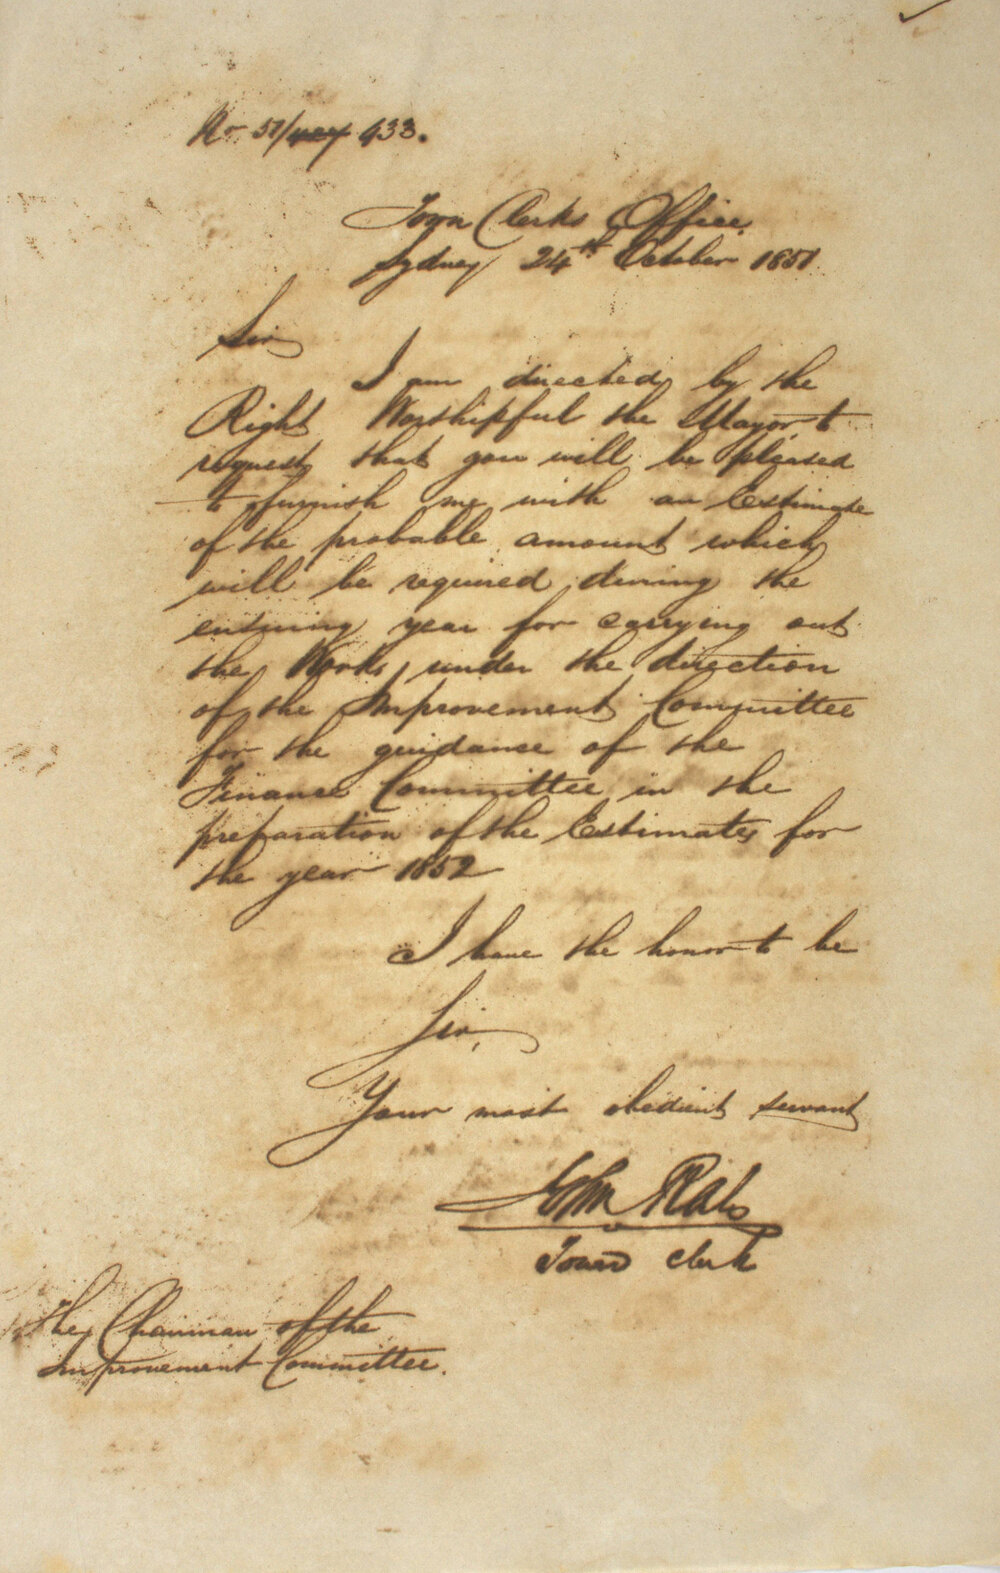 No 51/ 433.
Town Clerks Office
Sydney 24th October 1851
Sir
I am directed by the
Right Worshipful the Mayor to
request that you will be pleased
to furnish me with an Estimate
of the probable amount which
will be required during the
ensuing year for carrying out
the Works under the direction
of the Improvement Committee
for the guidance of the
Finance Committee in the
preparation of the Estimates for
the year 1852
I have the honor to be
Sir,
Your most obedient servant
John Rae
Town Clerk
The Chairman of the
Improvement Committee.